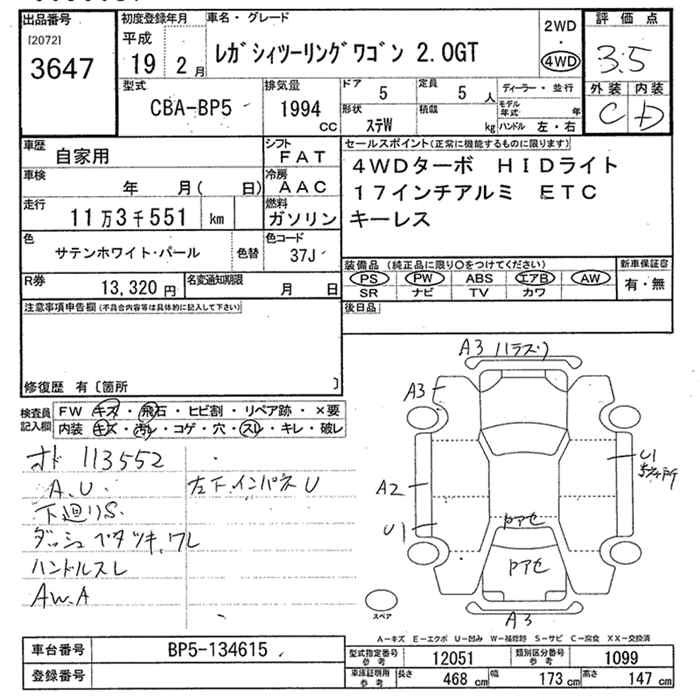 出品番号
[2072]
3647
初度登録年月
平成
19 2月
車名・グレード
レガシィツーリングワゴン 2.0GT
2WD
・
4WD
評価点
3.5
外装 内装
C D
型式
CBA-BP5
排気量
1994
CC
ドア 5
定員 5 人
形状
ステW
積載
kg
ディーラー・並行
モデル年式 年
ハンドル 左・右
車歴
自家用
シフト
FAT
車検
年 月( 日)
冷房
AAC
走行
11万3千551 km
燃料
ガソリン
色
サテンホワイト・パール
色替
色コード
37J
セールスポイント(正常に機能するものに限ります)
4WDターボ HIDライト
17インチアルミ ETC
キーレス
装備品 (純正品に限り○をつけてください)
PS PW ABS エアB AW
SR ナビ TV カワ
新車保証書
有・無
R券
13,320 円
名変通知期限
月 日
後日品
注意事項申告欄(不具合内容等は具体的に記入して下さい)
修復歴 有〔箇所 〕
検査員
記入欄
FW キズ・飛石・ヒビ割・リペア跡・×要
内装 キズ・汚レ・コゲ・穴・スレ・キレ・破レ
オド 113552
A.U
左下インパネU
下廻りS
ダッシュベタツキ.ワレ
ハンドルスレ
AW.A
A3 ハラズリ
A3
A2
U1
U1
ドアセ
ドアセ
A3
スペア
A−キズ E−エクボ U−凹み W−補修跡 S−サビ C−腐食 XX−交換済
車台番号
BP5-134615
登録番号
型式指定番号
参考
12051
類別区分番号
参考
1099
車検証明用
参考
長さ 468 cm
幅 173 cm
高さ 147 cm